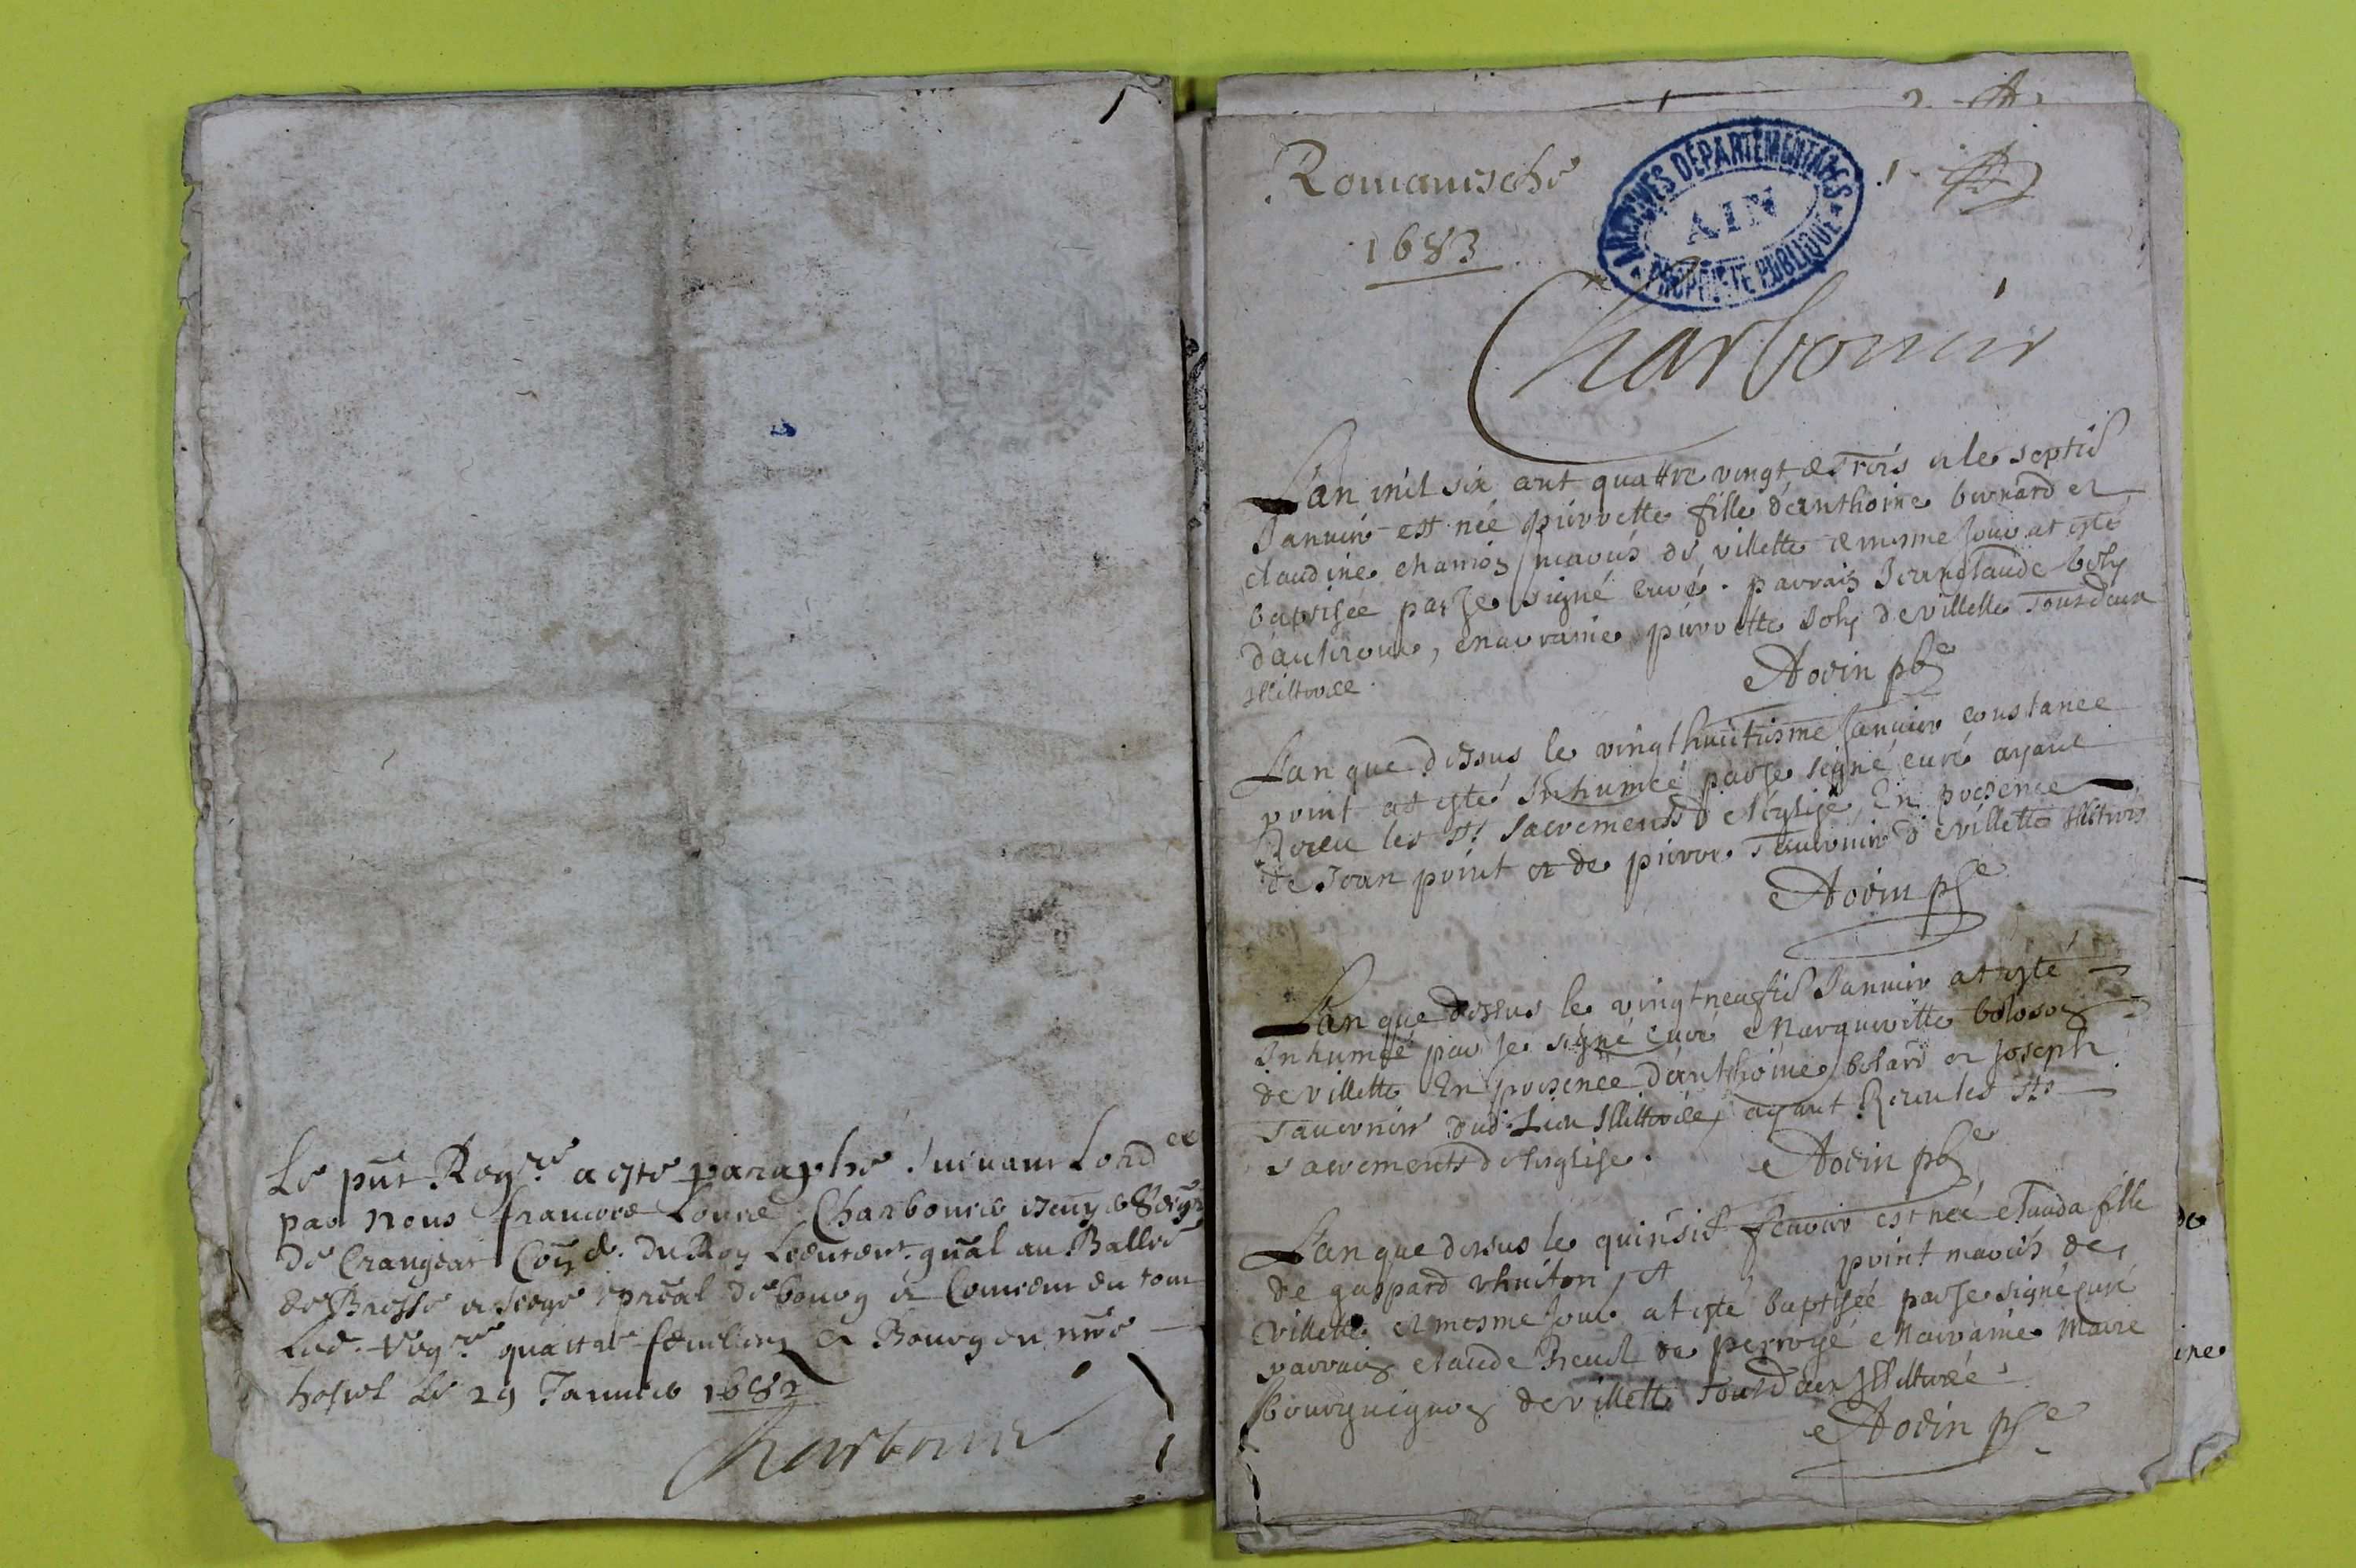 Le pnt Regre a esté paraphé suivant Lordce
par nous francois Louis Charbonier escuyer Seigr
de Crangeat Conser du Roy Lieutent gnal au Balliage
de Bresse et siege presal de bourg et Contient en tout
Led. Regre quattre feuillets A Bourg en nre
hostel Le 29 Januier 1682
Charbonier
1
Romanesche
1683
ARCHIVES DEPARTEMENTALES
AIN
PROPRIETE PUBLIQUE
Charbonier
Lan mil six cent quattre vingt et trois et le septie
Januier est née pierrette fille d'anthoine bernard et
claudine mariés de villette et mesme jour at esté
baptisée par Je signé curé. parrain Jeanclaude
marraine pierrette de villette tous deux
illitterée
Aodin pbe
Lan que dessus le vingthuictiesme Januier constance
point at esté Inhumée par Je signé curé ayant
Receu les Sts sacrements de l'eglise En presence
de Jean point et de pierre Tauernier de villette illiterés
Aodin pbe
Lan que dessus le vingtneufie Januier at esté
Inhumée par Je signé curé Margueritte
de villette En presence d'anthoine et Joseph
Tauernier dud. Lieu illitterée, ayant Receu les Sts
sacrements de leglise.
Aodin pbe
Lan que dessus le quinsie feburier est née Clauda fille
de gaspard et point mariés de
Villette et mesme jour at esté baptisée par Je signé Curé
parrain claude de perroge Marraine Marie
Bourguignon de villette tous deux illitterée
Aodin pbe